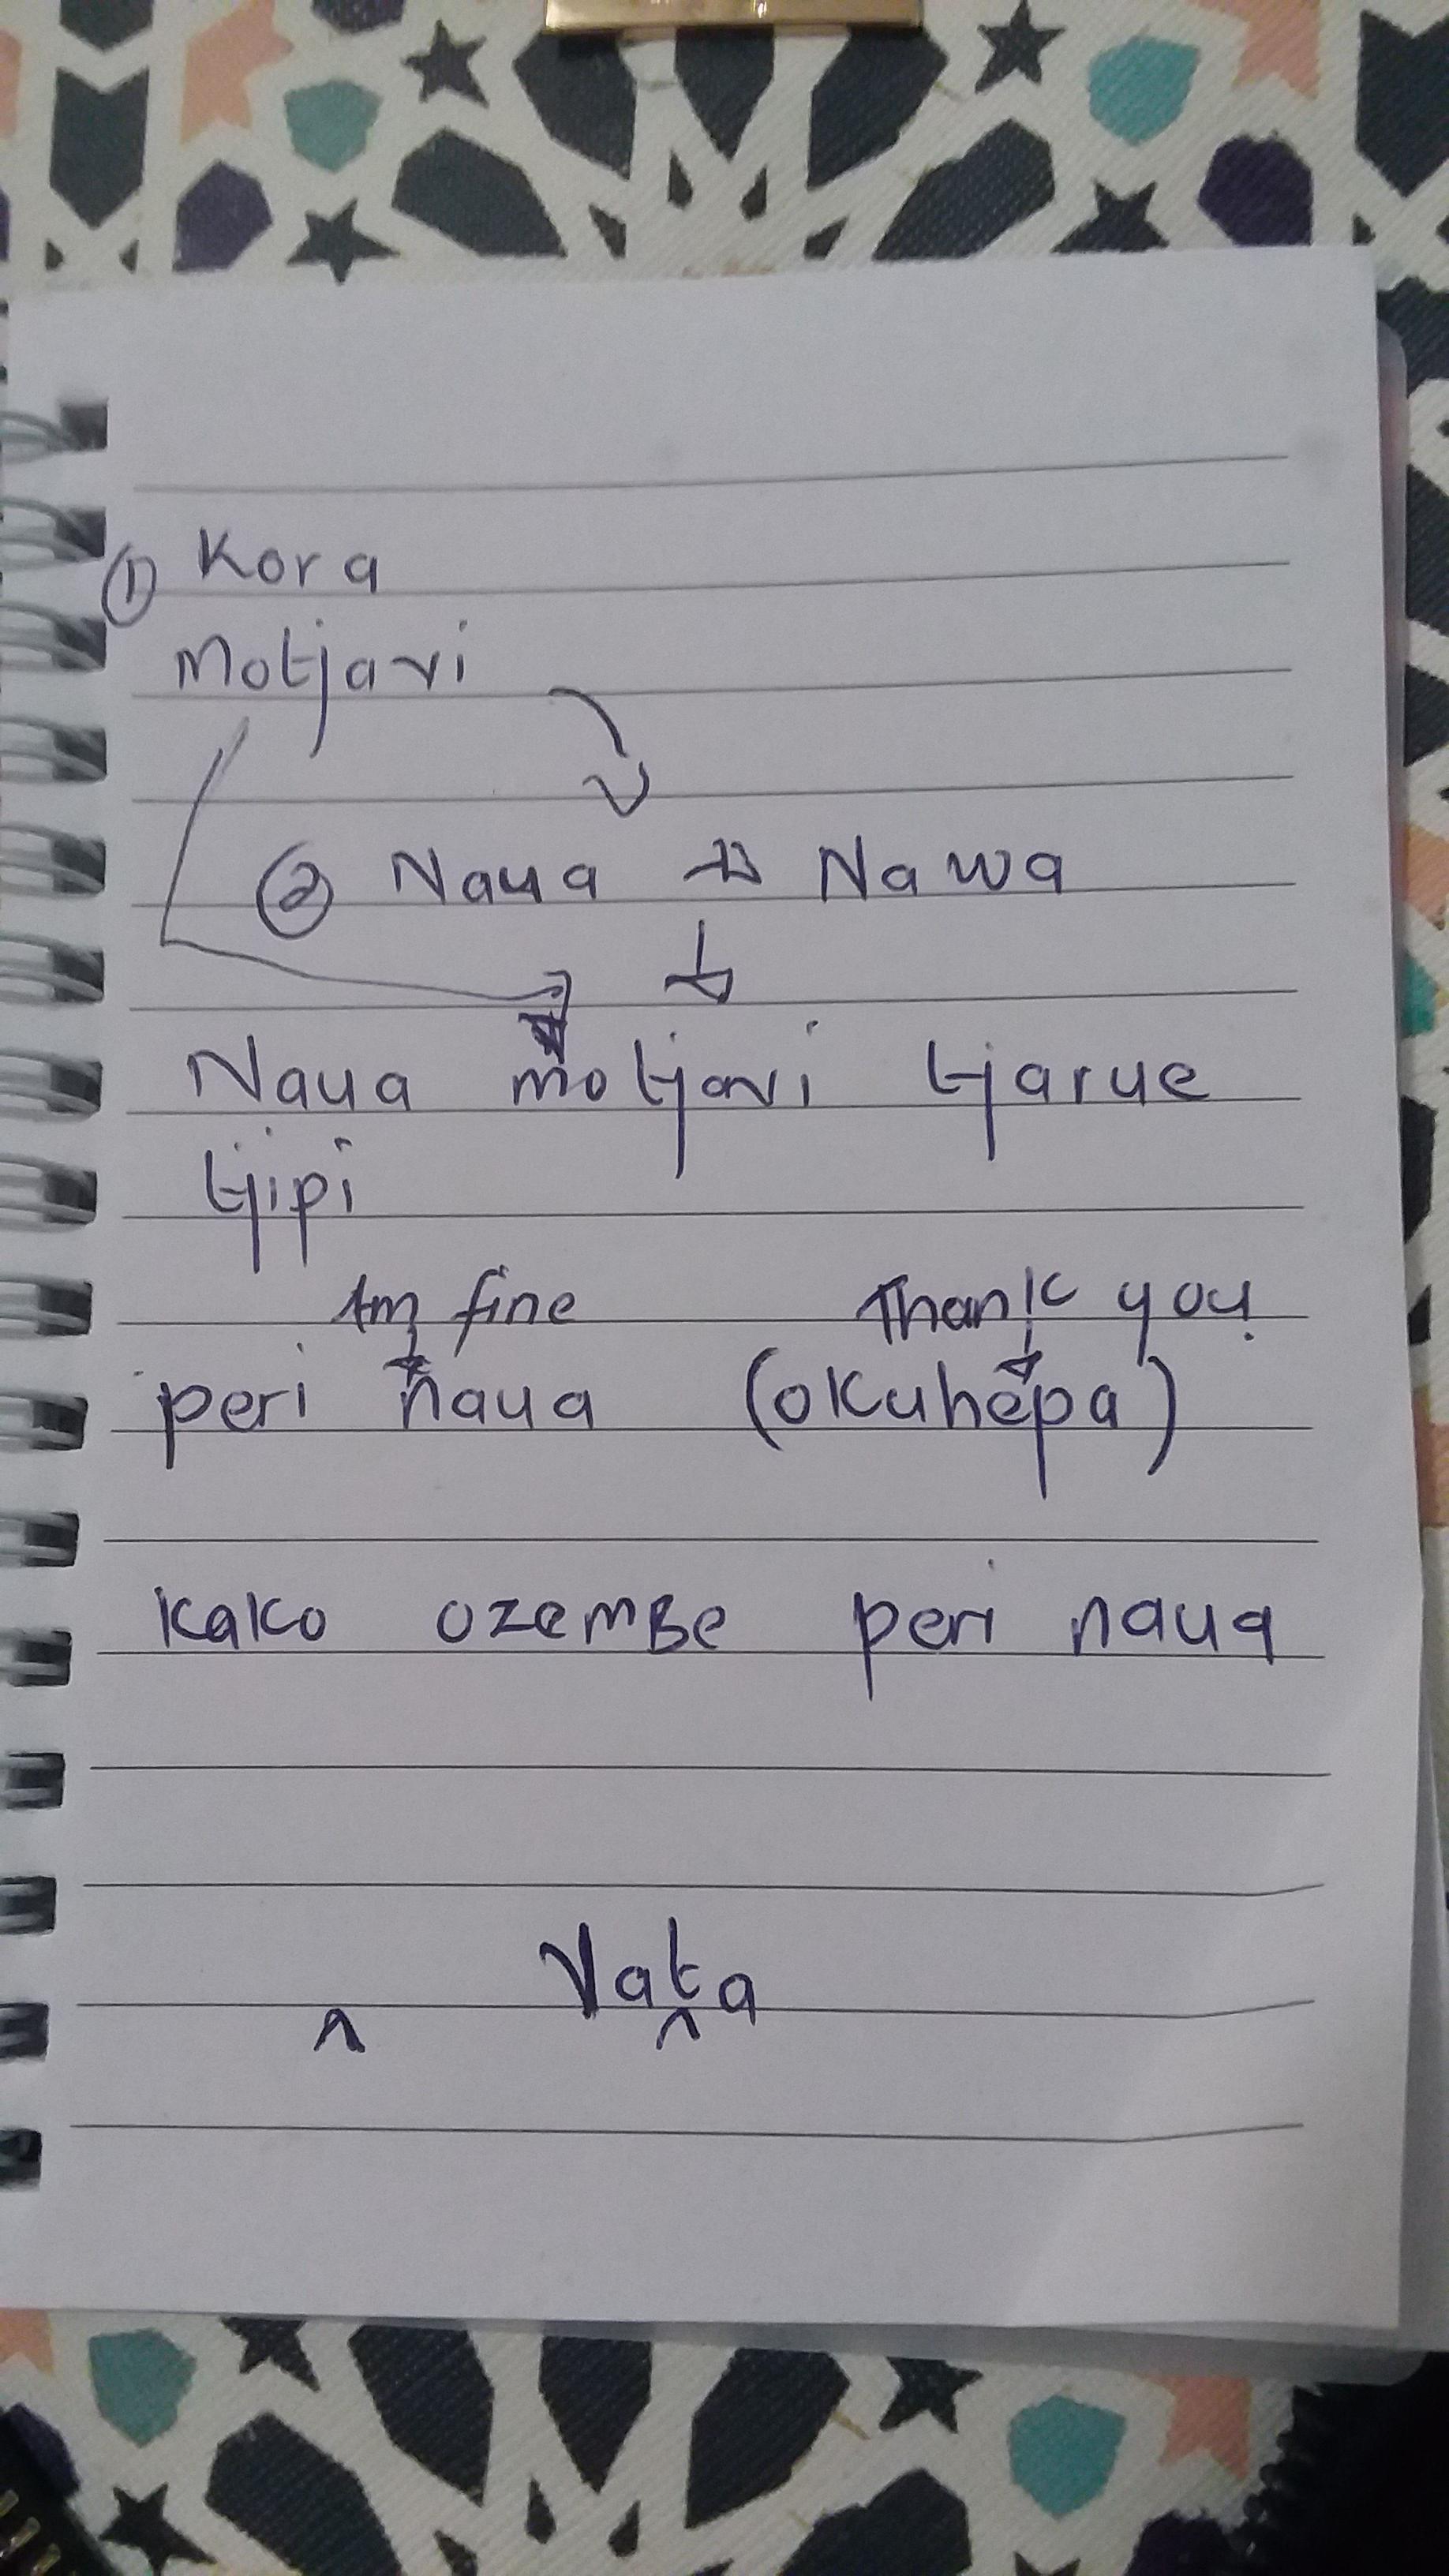 ① Kora
Motjavi
② Naua → Nawa
Naua motjavi tjarue
tjipi
Am fine Thank you
peri naua (okuhepa)
kako ozembe peri naua
Vata